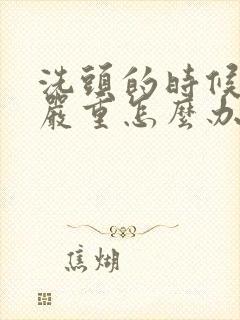 洗頭的時候
嚴重怎麼办
焦煳